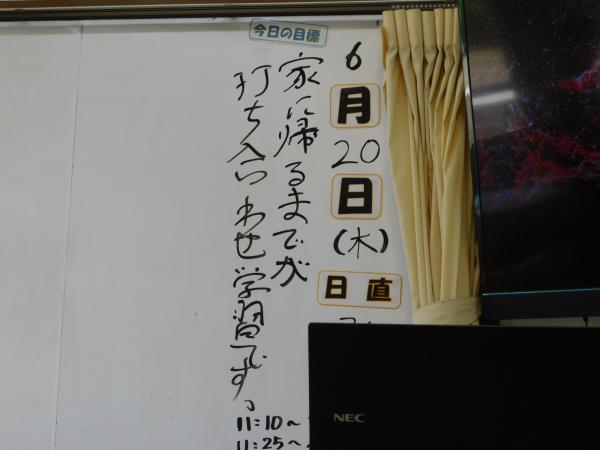 6月20日(木)
日直
今日の目標
家に帰るまでが
打ち合わせ学習です。
11:10~
11:25~
NEC